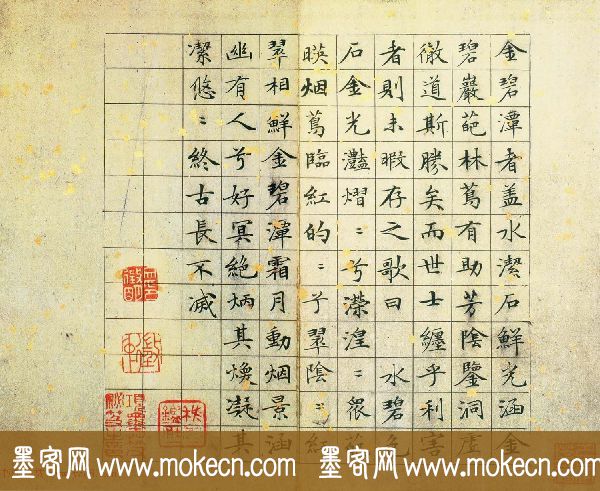 金碧潭者盖水潔石鮮光涵金
碧巖葩林蔦有助芳陰鑒洞虛
徹道斯勝矣而世士纏乎利害
者則未暇存之歌曰 水碧色
石金光灩熠〻兮瀅湟〻
暎烟蔦臨紅的〻兮翠陰〻紅
翠相鮮金碧潭霜月動烟景涵
幽有人兮好冥絶炳其煥凝其
潔悠〻終古長不滅
墨客网 www.mokecn.com 墨客网 www.mokecn.com